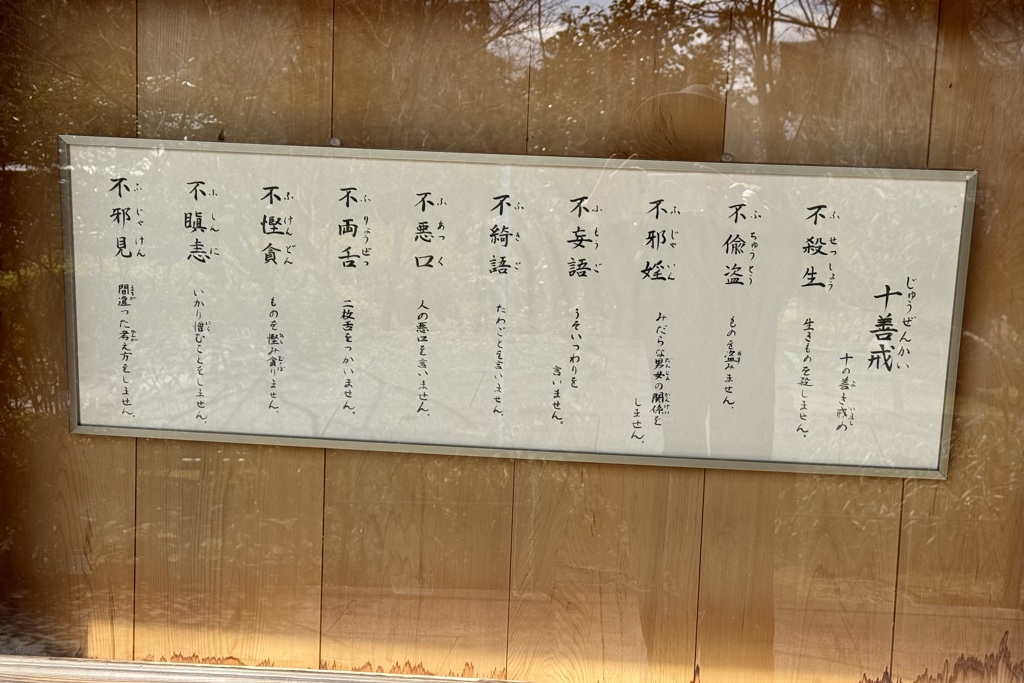 十善戒
じゅうぜんかい
十の善き戒め
よ いまし
不殺生
ふせっしょう
生きものを殺しません。
不偸盗
ふちゅうとう
ものを盗みません。
不邪婬
ふじゃいん
みだらな男女の関係を
だんじょ かんけい
しません。
不妄語
ふもうご
うそいつわりを
言いません。
不綺語
ふきご
たわごとを言いません。
不悪口
ふあっく
人の悪口を言いません。
不両舌
ふりょうぜつ
二枚舌をつかいません。
不慳貪
ふけんどん
ものを慳み貪りません。
不瞋恚
ふしんに
いかり憎むことをしません。
不邪見
ふじゃけん
間違った考え方をしません。